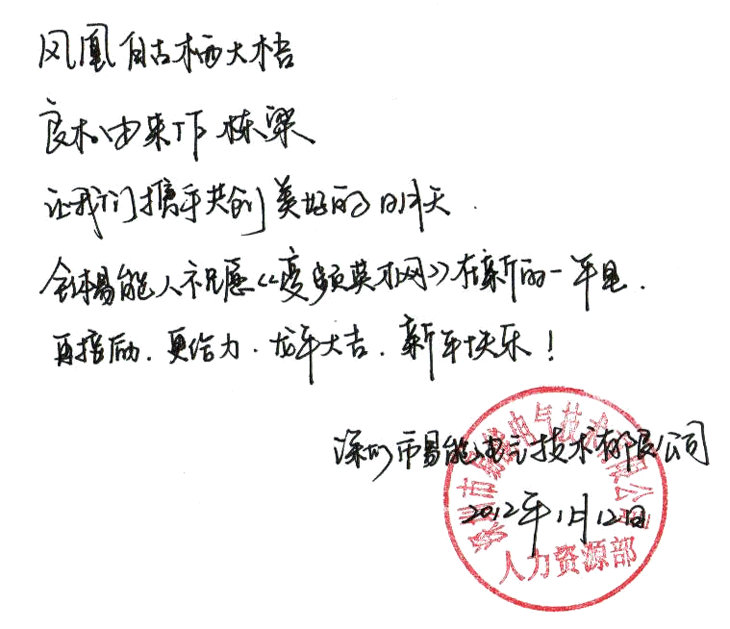 凤凰自古栖大梧
良木由来作栋梁
让我们携手共创美好的明天.
全体易能人祝愿《变频英才网》在新的一年里.
再接再励.更给力.龙年大吉.新年快乐!
深圳市易能电气技术有限公司
2012年1月12日
深圳市易能电气技术有限公司
人力资源部